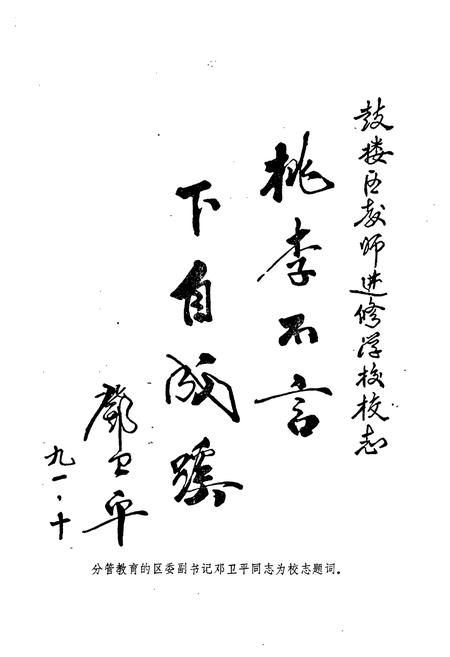 鼓楼区教师进修学校校志
桃李不言
下自成蹊
邓卫平
九一·十
分管教育的区委副书记邓卫平同志为校志题词。